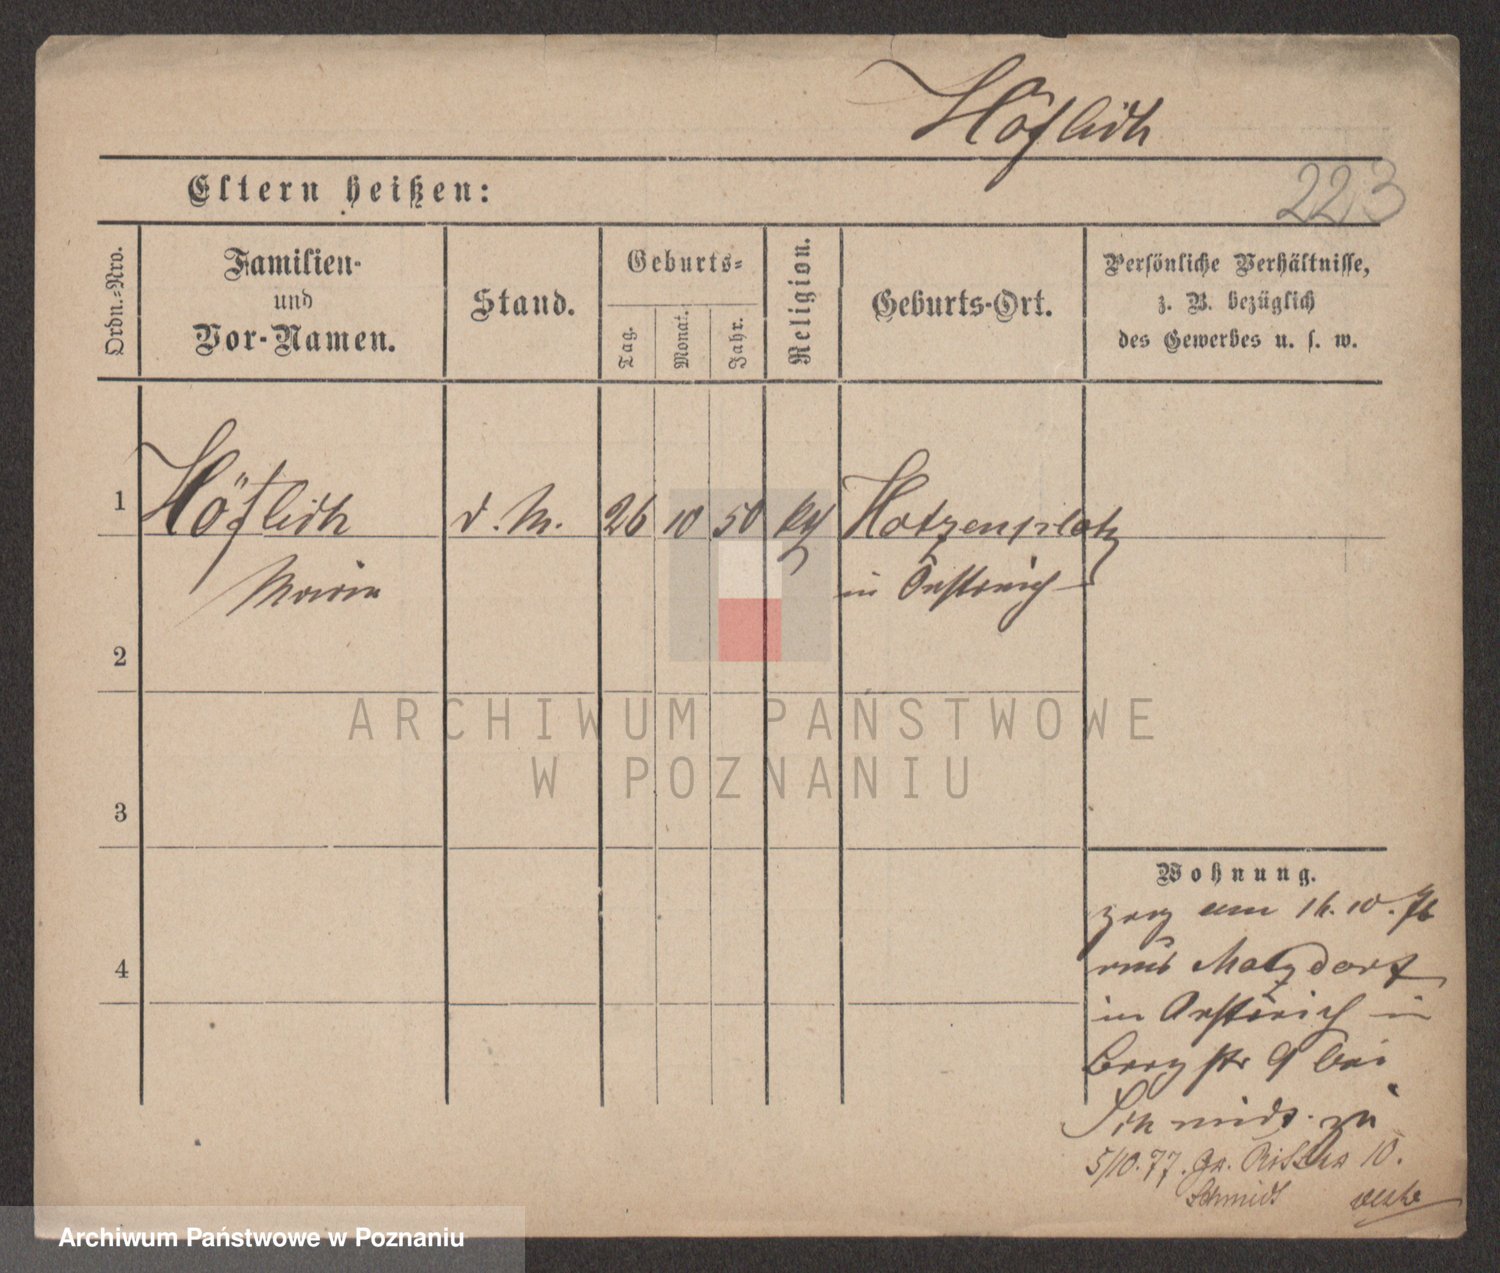 Höflich
Eltern heißen:
223
Ordn.-Nro.
Familien-
und
Vor-Namen.
Stand.
Geburts-
Tag.
Monat.
Jahr.
Religion.
Geburts-Ort.
Persönliche Verhältnisse,
z. B. bezüglich
des Gewerbes u. s. w.
1
Höflich
d. M.
26
10
50
Hotzenplotz
Maria
in Östreich
2
ARCHIWUM PAŃSTWOWE
W POZNANIU
3
Wohnung.
zog am 16.10.76
aus Matzdorf
in Östreich in
Bergstr 9 bei
Schmidt. zu
4
5/10.77. Gr. Ritterstr 10.
Schmidt
Archiwum Państwowe w Poznaniu